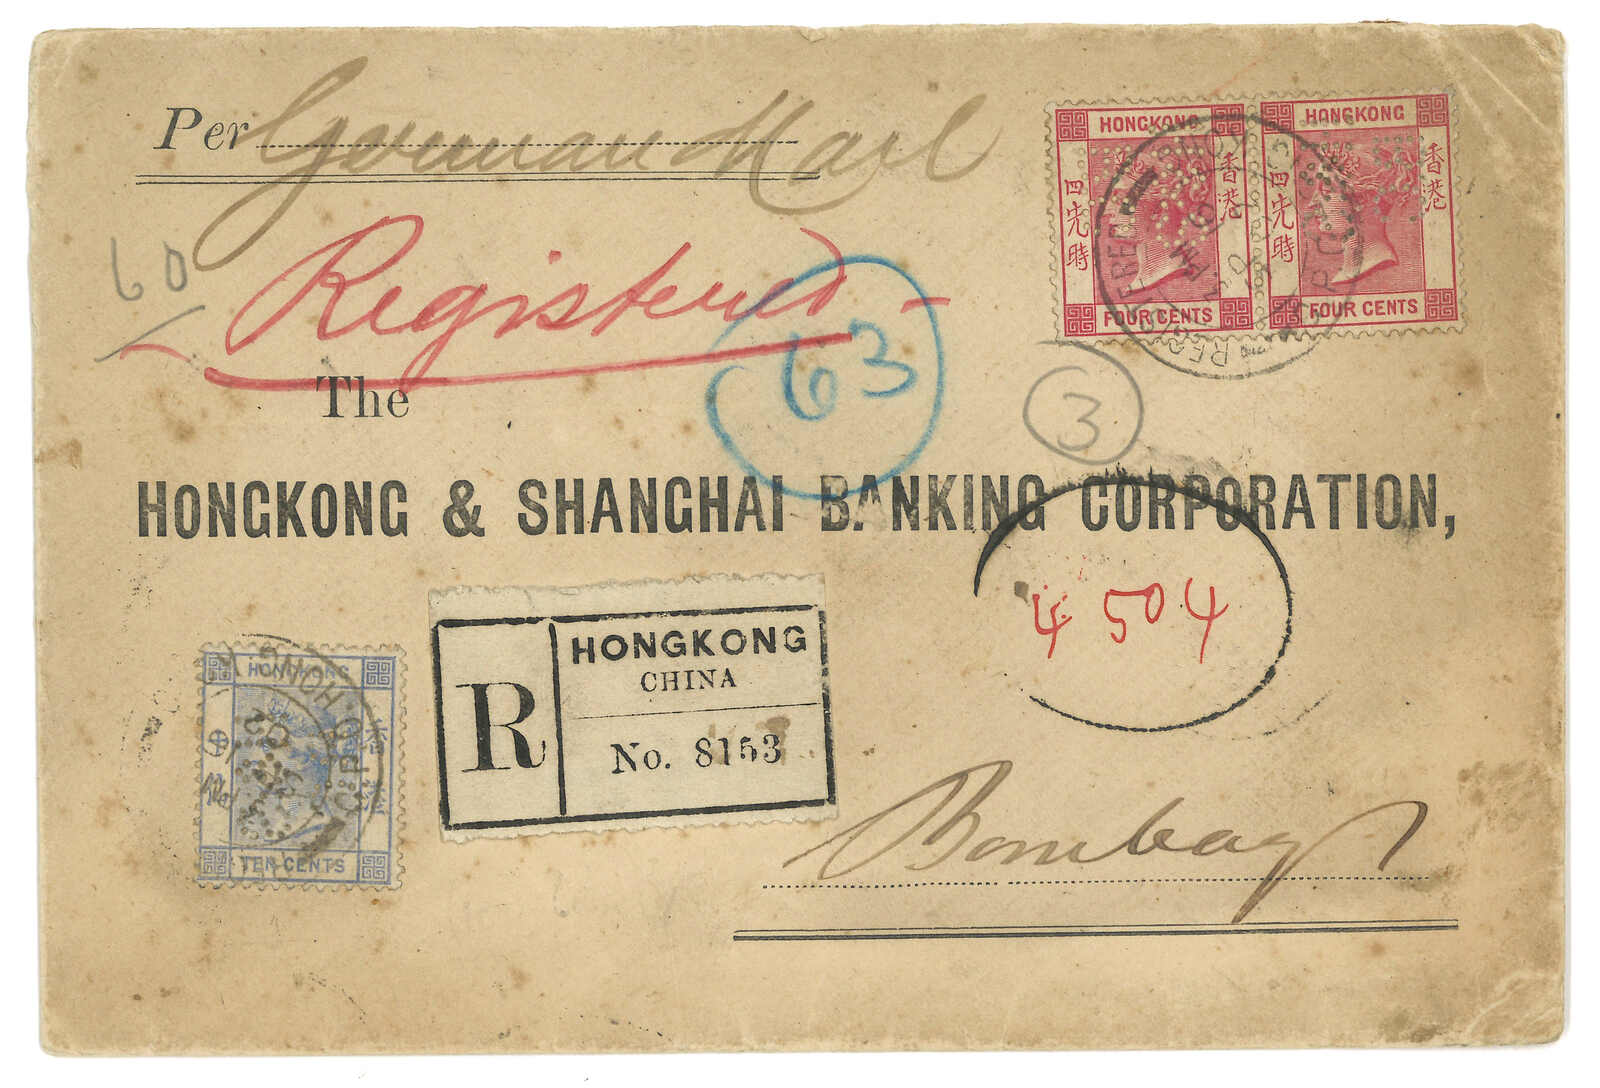 Per German Mail
HONGKONG
香港
四先時
FOUR CENTS
HONGKONG
香港
四先時
FOUR CENTS
60
Registered
63
The
3
HONGKONG & SHANGHAI BANKING CORPORATION,
4 504
R
HONGKONG
CHINA
No. 8153
HONGKONG
香港
TEN CENTS
Bombay